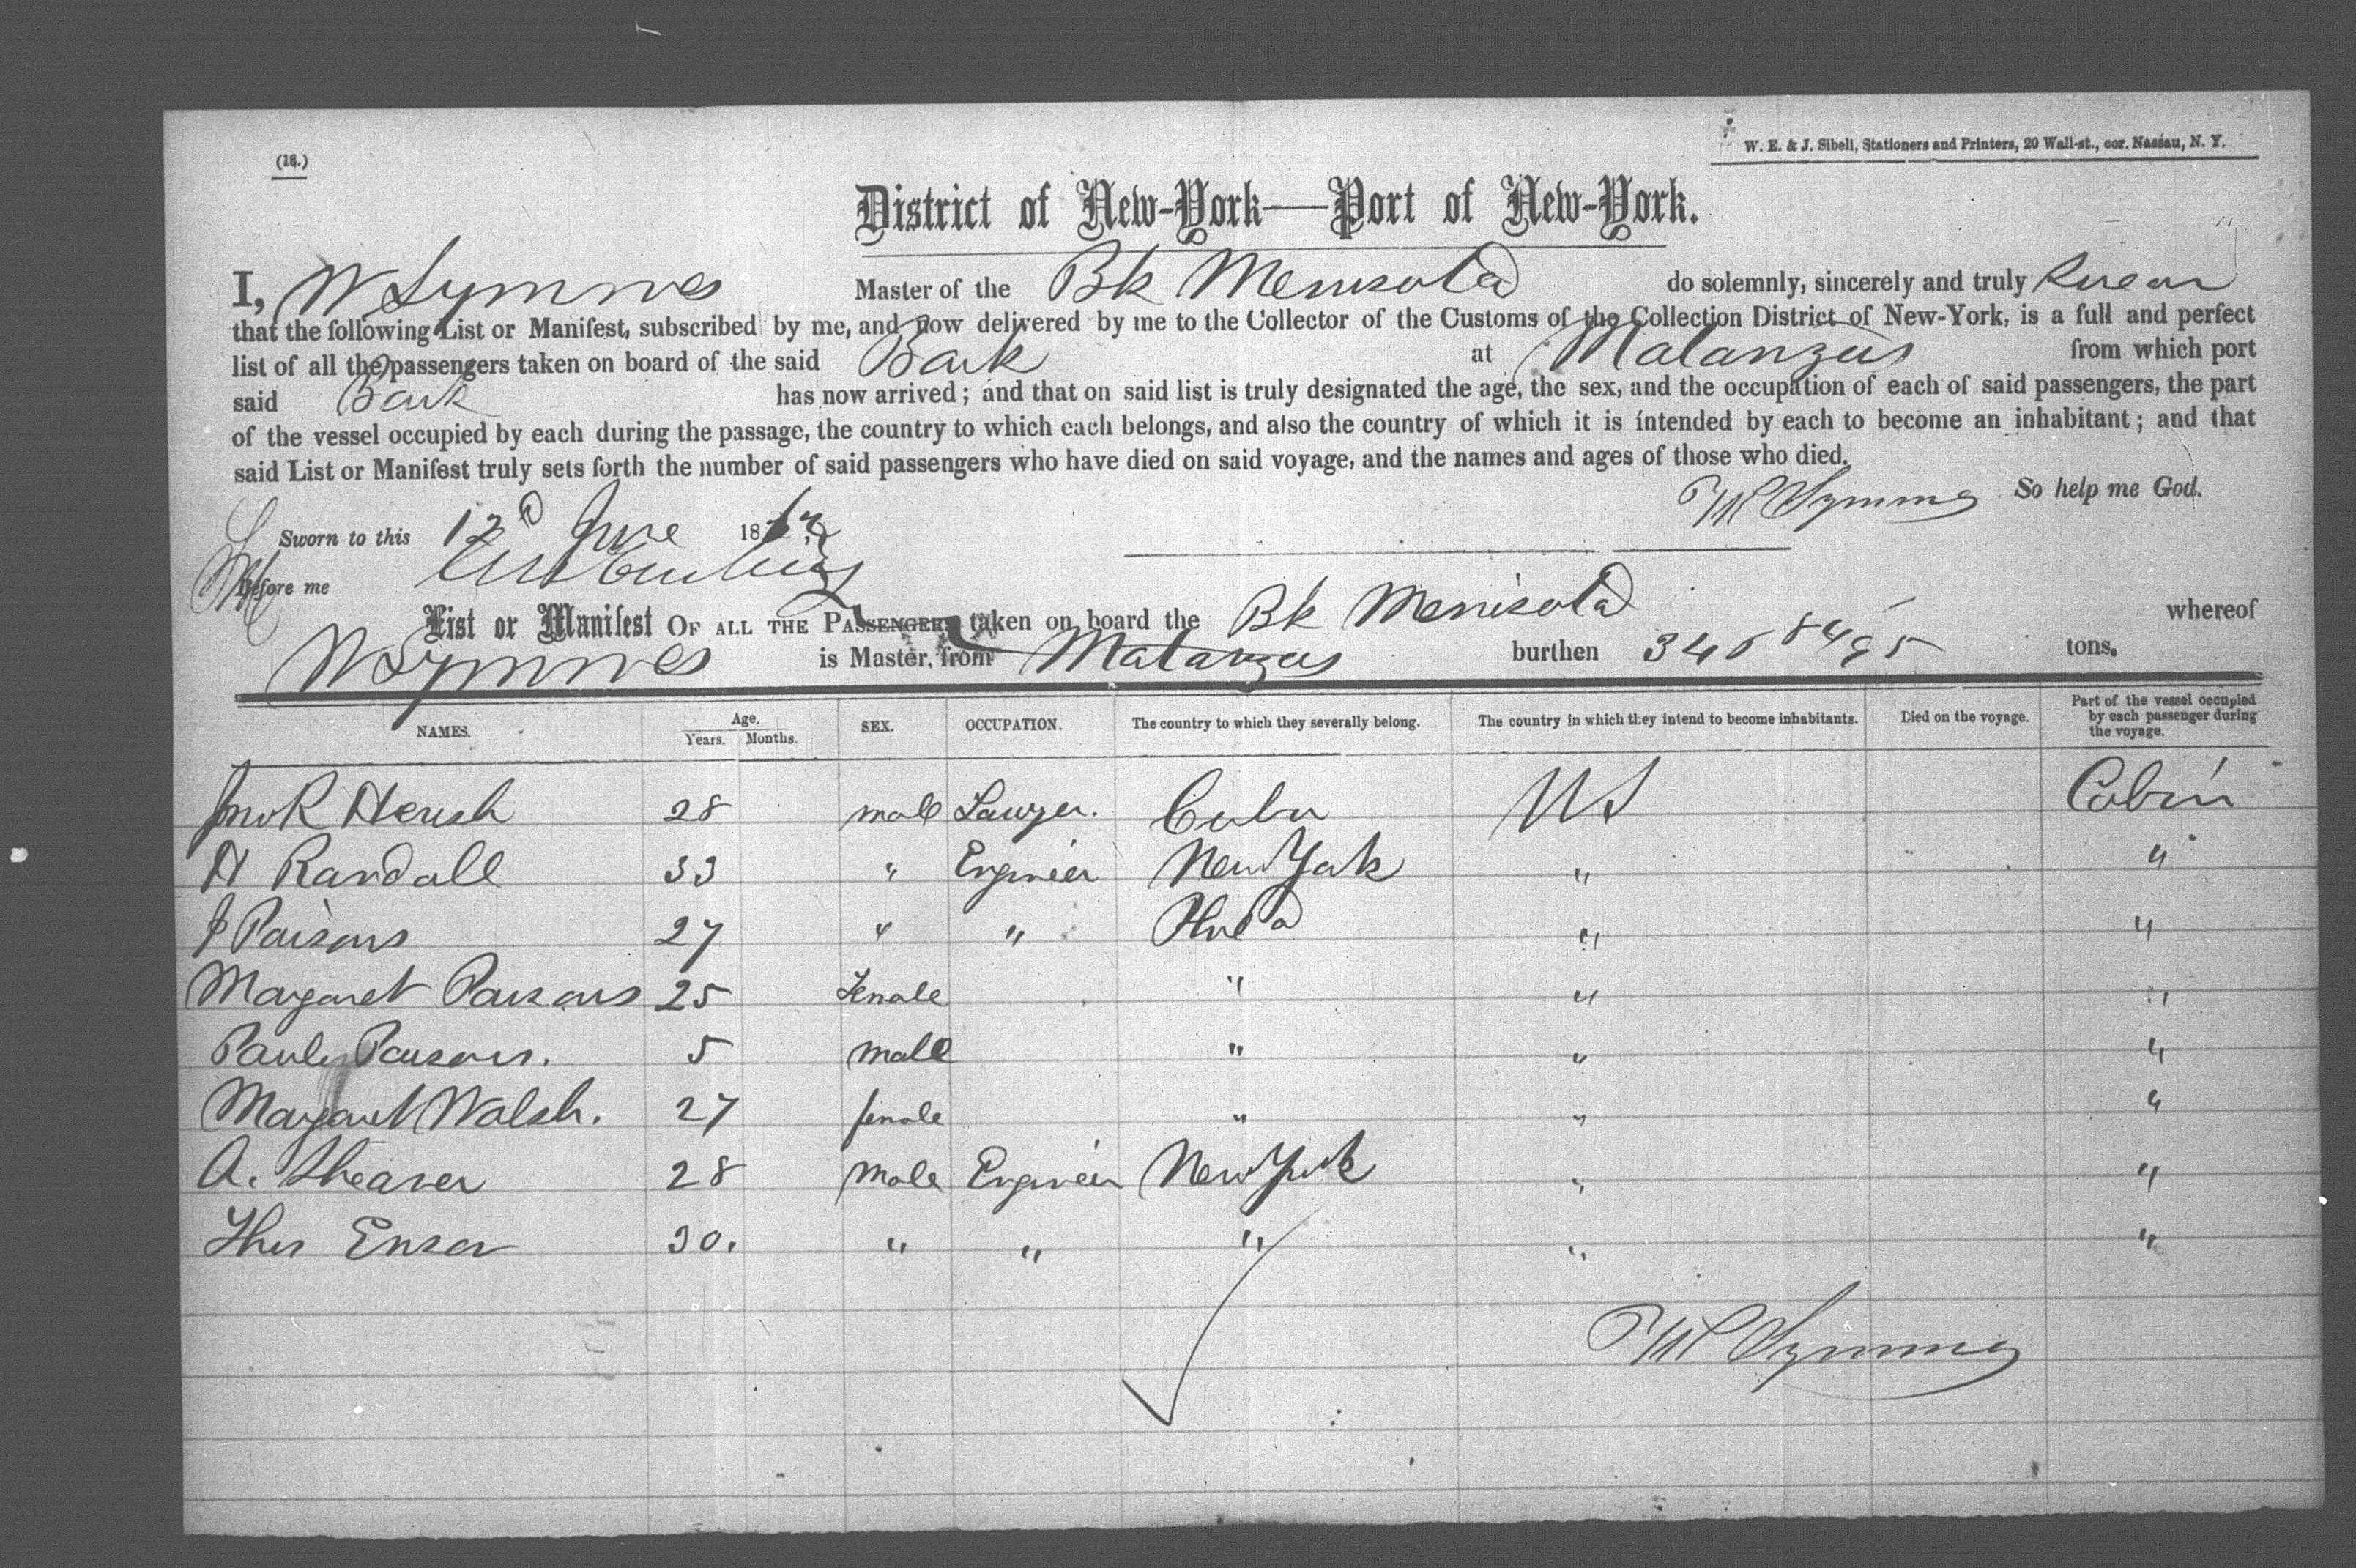 (18.)
W. E. & J. Sibell, Stationers and Printers, 20 Wall-st., cor. Nassau, N. Y.
District of New-York—Port of New-York.
I, W Symmes Master of the Bk Menisota do solemnly, sincerely and truly swear
that the following List or Manifest, subscribed by me, and now delivered by me to the Collector of the Customs of the Collection District of New-York, is a full and perfect
list of all the passengers taken on board of the said Bark at Matanzas from which port
said Bark has now arrived; and that on said list is truly designated the age, the sex, and the occupation of each of said passengers, the part
of the vessel occupied by each during the passage, the country to which each belongs, and also the country of which it is intended by each to become an inhabitant; and that
said List or Manifest truly sets forth the number of said passengers who have died on said voyage, and the names and ages of those who died.
So help me God.
W Symmes
Sworn to this 12 June 18
Before me
List or Manifest OF ALL THE PASSENGERS taken on board the Bk Menisota whereof
W Symmes is Master, from Matanzas burthen 346 84/95 tons.
NAMES. Age. Years. Months. SEX. OCCUPATION. The country to which they severally belong. The country in which they intend to become inhabitants. Died on the voyage. Part of the vessel occupied by each passenger during the voyage.
Jno R Hersh 28 male Lawyer. Cuba US Cabin
H Randall 33 " Engineer New York " "
J Parsons 27 " " " "
Margaret Parsons 25 Female " " "
Parsons. 5 male " " "
Margaret Walsh. 27 female " " "
A. Shearer 28 Male Engineer New York " "
Thos Ensor 30. " " " " "
W Symmes